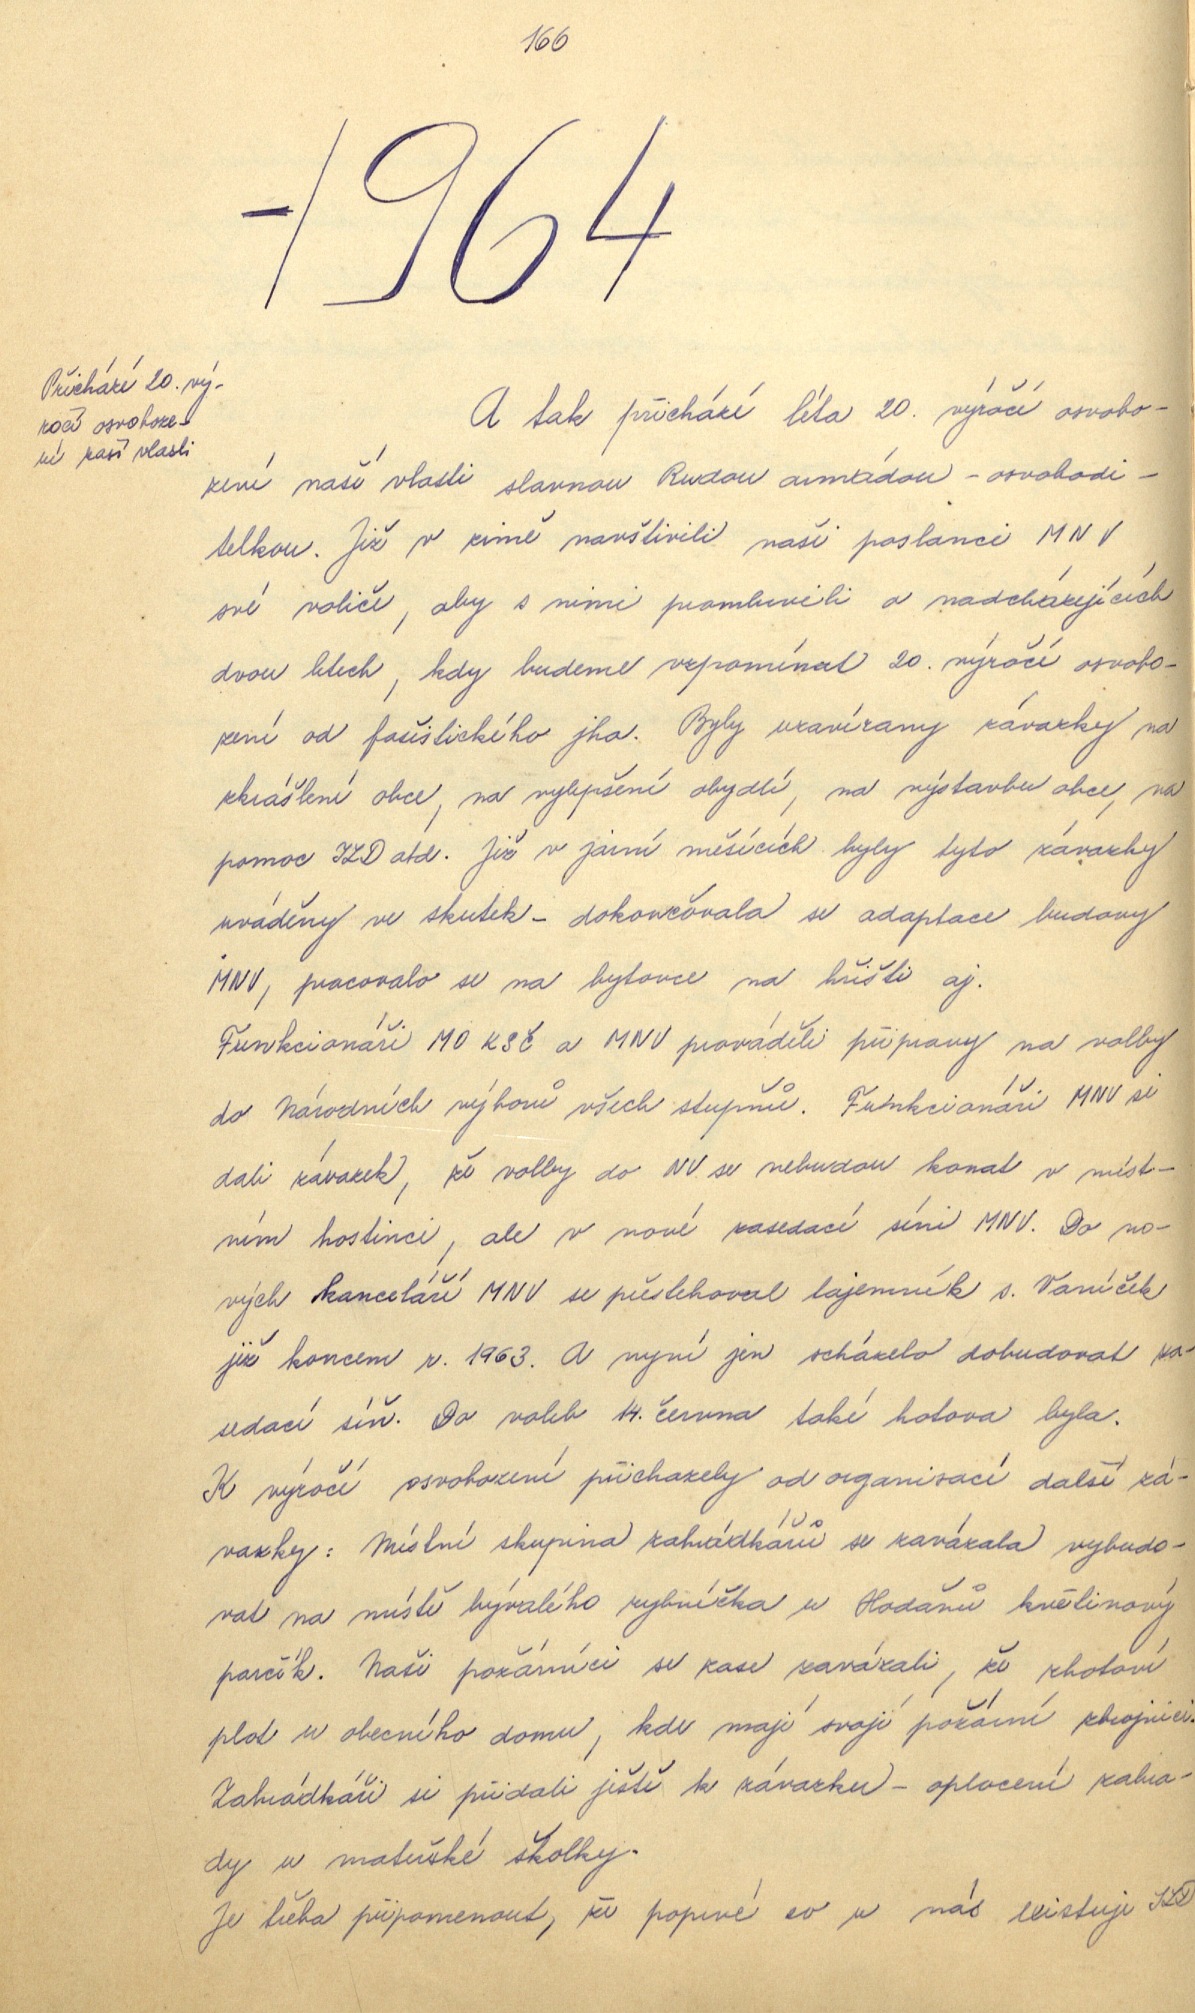 166
1964
Přichází 20. vý-
ročí osvoboze-
ní naší vlasti
A tak přichází léta 20. výročí osvobo-
zení naší vlasti slavnou Rudou armádou - osvobodi-
telkou. Již v zimě navštívili naši poslanci MNV
své voliče, aby s nimi promluvili o nadcházejících
dvou letech, kdy budeme vzpomínat 20. výročí osvobo-
zení od fašistického jha. Byly uzavírany závazky na
zkrášlení obce, na vylepšení obydlí, na výstavbu obce, na
pomoc JZD atd. Již v jarní měsících byly tyto závazky
uváděny ve skutek - dokončovala se adaptace budovy
MNV, pracovalo se na bytovce na hřišti aj.
Funkcionáři MO KSČ a MNV prováděli přípravy na volby
do Národních výborů všech stupňů. Funkcionáři MNV si
dali závazek, že volby do NV se nebudou konat v míst-
ním hostinci, ale v nové zasedací síni MNV. Do no-
vých kanceláří MNV se přestěhoval tajemník s. Vaníček
již koncem r. 1963. A nyní jen scházelo dobudovat za-
sedací síň. Do voleb 14. června také hotova byla.
K výročí osvobození přicházely od organisací další zá-
vazky: Místní skupina zahrádkářů se zavázala vybudo-
vat na místě bývalého rybníčka u Hodaňů květinový
parčík. Naši požárníci se zase zavázali, že zhotoví
plot u obecního domu, kde mají svoji požární zbrojnici.
Zahrádkáři si přidali ještě k závazku - oplocení zahra-
dy u mateřské školky.
Je třeba připomenout, že poprvé co u nás existuje JZD